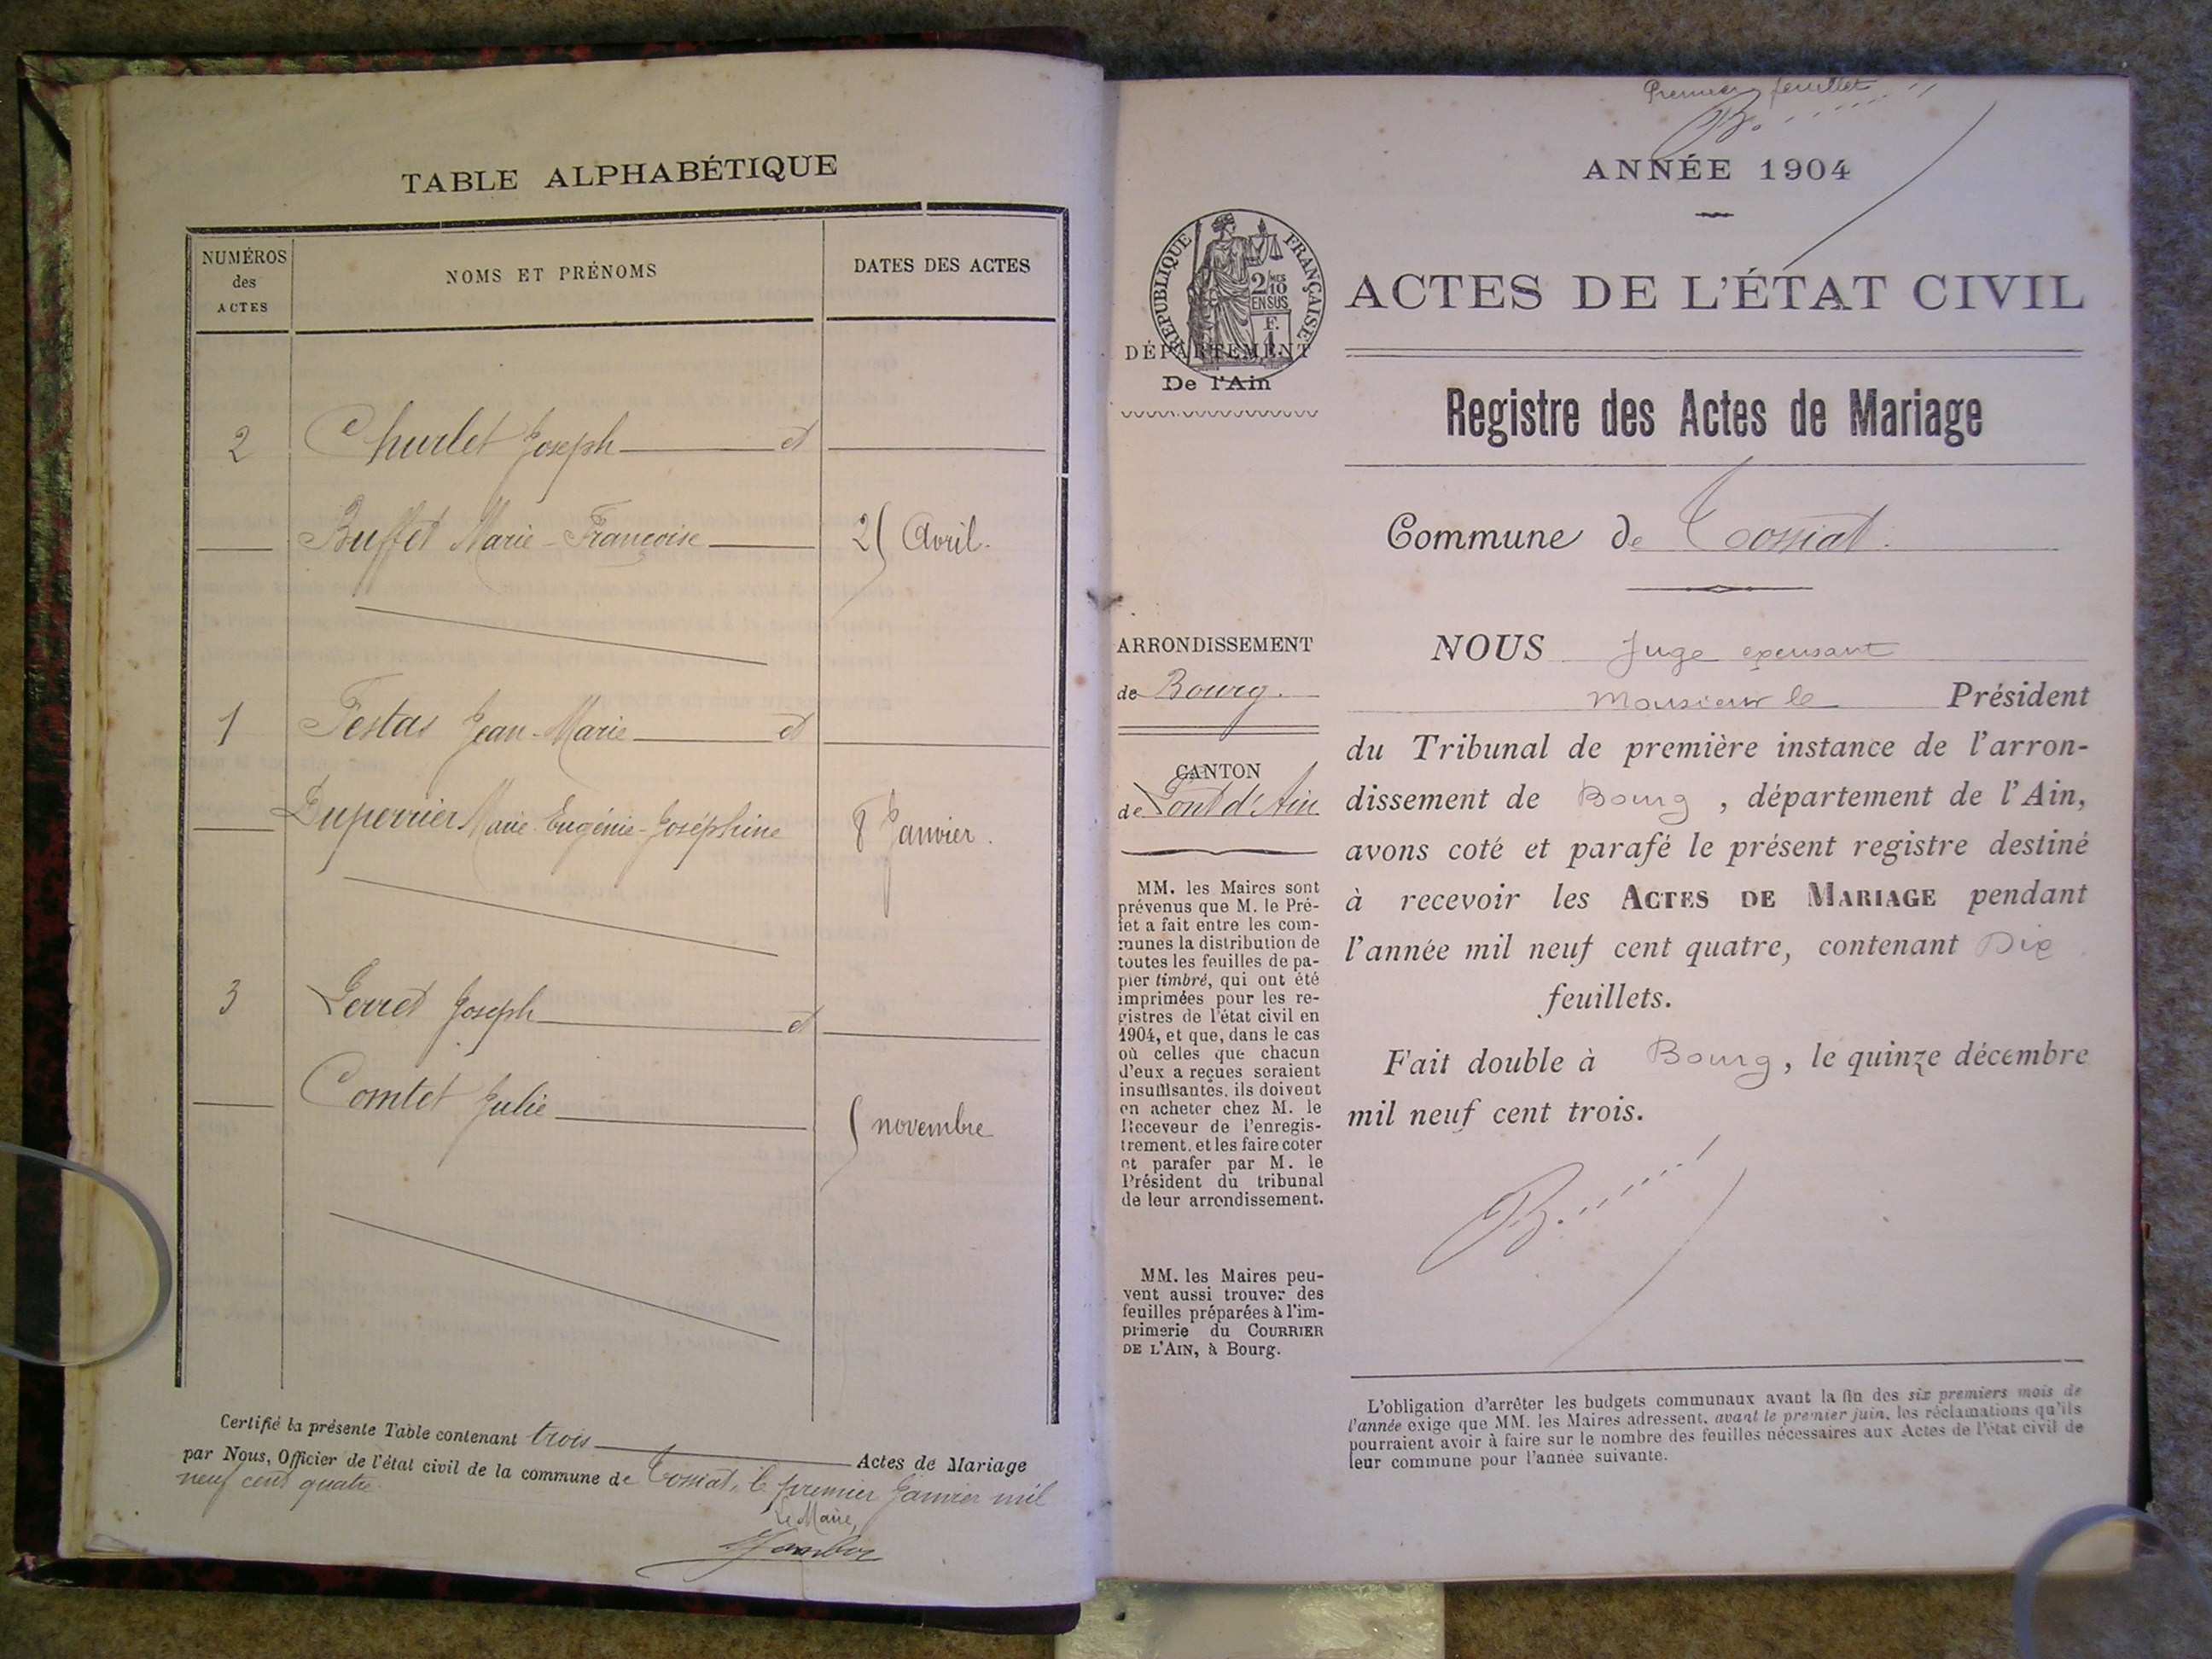 TABLE ALPHABÉTIQUE
NUMÉROS
des
ACTES
NOMS ET PRÉNOMS
DATES DES ACTES
2 Churlet Joseph et
Buffet Marie-Françoise Avril.
1 Festas Jean-Marie et
Duperrier Marie Eugénie-Joséphine 8 Janvier.
3 Perret Joseph et
Comtet Julie novembre
Certifié la présente Table contenant trois Actes de Mariage
par Nous, Officier de l'état civil de la commune de Tossiat, le premier Janvier mil
neuf cent quatre
Le Maire,
Premier feuillet
ANNÉE 1904
RÉPUBLIQUE FRANÇAISE
2/10
EN SUS
F.
1
DÉPARTEMENT
De l'Ain
ACTES DE L'ÉTAT CIVIL
Registre des Actes de Mariage
Commune de Tossiat.
ARRONDISSEMENT
de Bourg.
CANTON
de Pont d'Ain
MM. les Maires sont
prévenus que M. le Pré-
fet a fait entre les com-
munes la distribution de
toutes les feuilles de pa-
pier timbré, qui ont été
imprimées pour les re-
gistres de l'état civil en
1904, et que, dans le cas
où celles que chacun
d'eux a reçues seraient
insuffisantes, ils doivent
en acheter chez M. le
Receveur de l'enregis-
trement, et les faire coter
et parafer par M. le
Président du tribunal
de leur arrondissement.
MM. les Maires peu-
vent aussi trouver des
feuilles préparées à l'im-
primerie du COURRIER
DE L'AIN, à Bourg.
NOUS Juge excusant
Monsieur le Président
du Tribunal de première instance de l'arron-
dissement de Bourg, département de l'Ain,
avons coté et parafé le présent registre destiné
à recevoir les ACTES DE MARIAGE pendant
l'année mil neuf cent quatre, contenant Dix
feuillets.
Fait double à Bourg, le quinze décembre
mil neuf cent trois.
L'obligation d'arrêter les budgets communaux avant la fin des six premiers mois de
l'année exige que MM. les Maires adressent, avant le premier juin, les réclamations qu'ils
pourraient avoir à faire sur le nombre des feuilles nécessaires aux Actes de l'état civil de
leur commune pour l'année suivante.